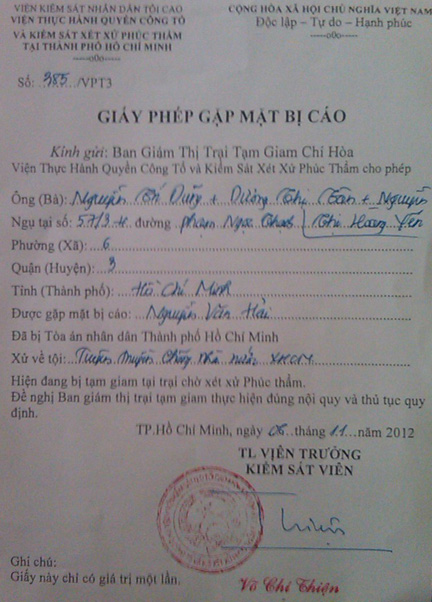 VIỆN KIỂM SÁT NHÂN DÂN TỐI CAO
VIỆN THỰC HÀNH QUYỀN CÔNG TỐ
VÀ KIỂM SÁT XÉT XỬ PHÚC THẨM
TẠI THÀNH PHỐ HỒ CHÍ MINH
-----o0o-----
CỘNG HÒA XÃ HỘI CHỦ NGHĨA VIỆT NAM
Độc lập – Tự do – Hạnh phúc
-----o0o-----
Số: 385 /VPT3
GIẤY PHÉP GẶP MẶT BỊ CÁO
Kính gửi: Ban Giám Thị Trại Tạm Giam Chí Hòa
Viện Thực Hành Quyền Công Tố và Kiểm Sát Xét Xử Phúc Thẩm cho phép
Ông (Bà): Nguyễn Trí Dũng + Dương Thị Tân + Nguyễn
Ngụ tại số: 57/3-H. đường Phạm Ngọc Thạch Thị Hoàng Yến
Phường (Xã): 6
Quận (Huyện): 3
Tỉnh (Thành phố): Hồ Chí Minh
Được gặp mặt bị cáo: Nguyễn Văn Hải
Đã bị Tòa án nhân dân Thành phố Hồ Chí Minh
Xử về tội: Tuyên truyền chống nhà nước XHCN
Hiện đang bị tạm giam tại trại chờ xét xử Phúc thẩm.
Đề nghị Ban giám thị trại tạm giam thực hiện đúng nội quy và thủ tục quy
định.
TP.Hồ Chí Minh, ngày 06 tháng 11 năm 2012
TL VIỆN TRƯỞNG
KIỂM SÁT VIÊN
Ghi chú:
Giấy này chỉ có giá trị một lần.
Võ Chí Thiện